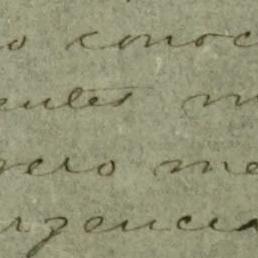 o conoc
entes m
vero me
rgencia